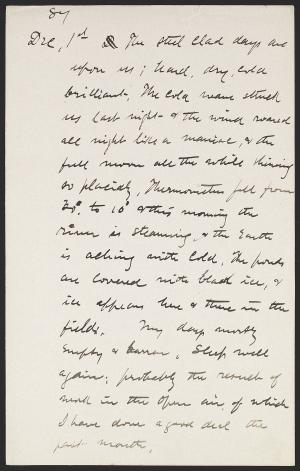 84
Dec, 1st The steel clad days are
upon us; hard, dry, cold
brilliant. The cold wave struck
us last night & the wind roared
all night like a maniac, & the
full moon all the while shining
so placidly. Thermometer fell from
to 10° & this morning the
river is steaming, & the Earth
is aching with cold. The ponds
are covered with black ice, &
ice appears here & there in the
fields. My days mostly
empty & barren. Sleep well
again; probably the result of
work in the open air, of which
I have done a good deal the
past month.